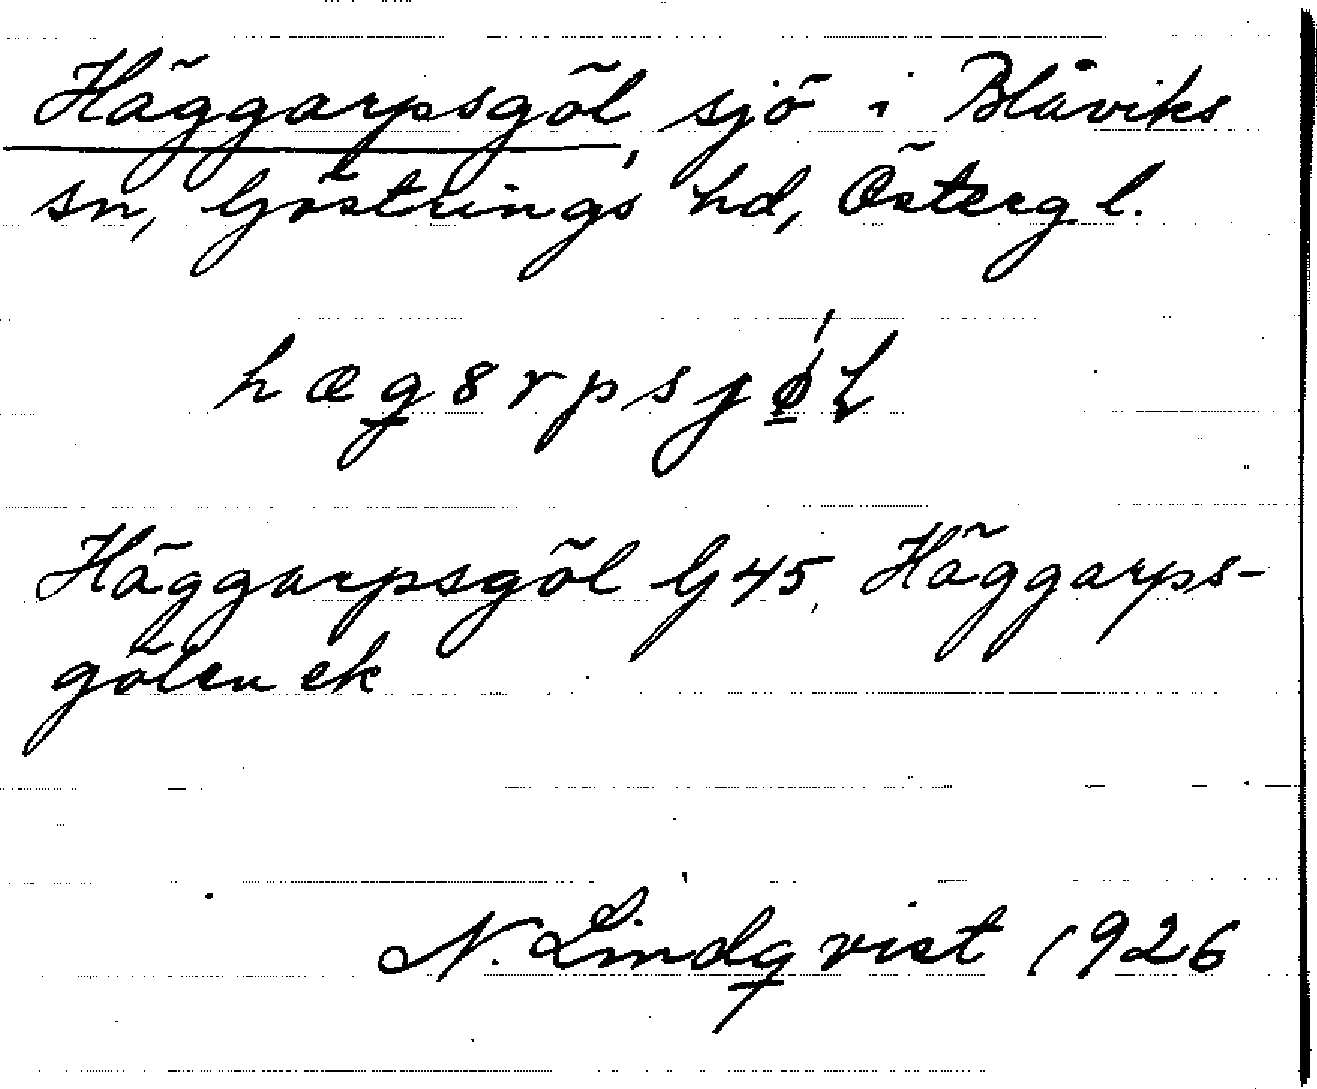 Häggarpsgöl, sjö i Blåviks
sn, Göstrings hd, Östergl.
hægsrpsjǿ̱ɫ
Häggarpsgöl G45, Häggarps-
gölen ek
N. Lindqvist 1926